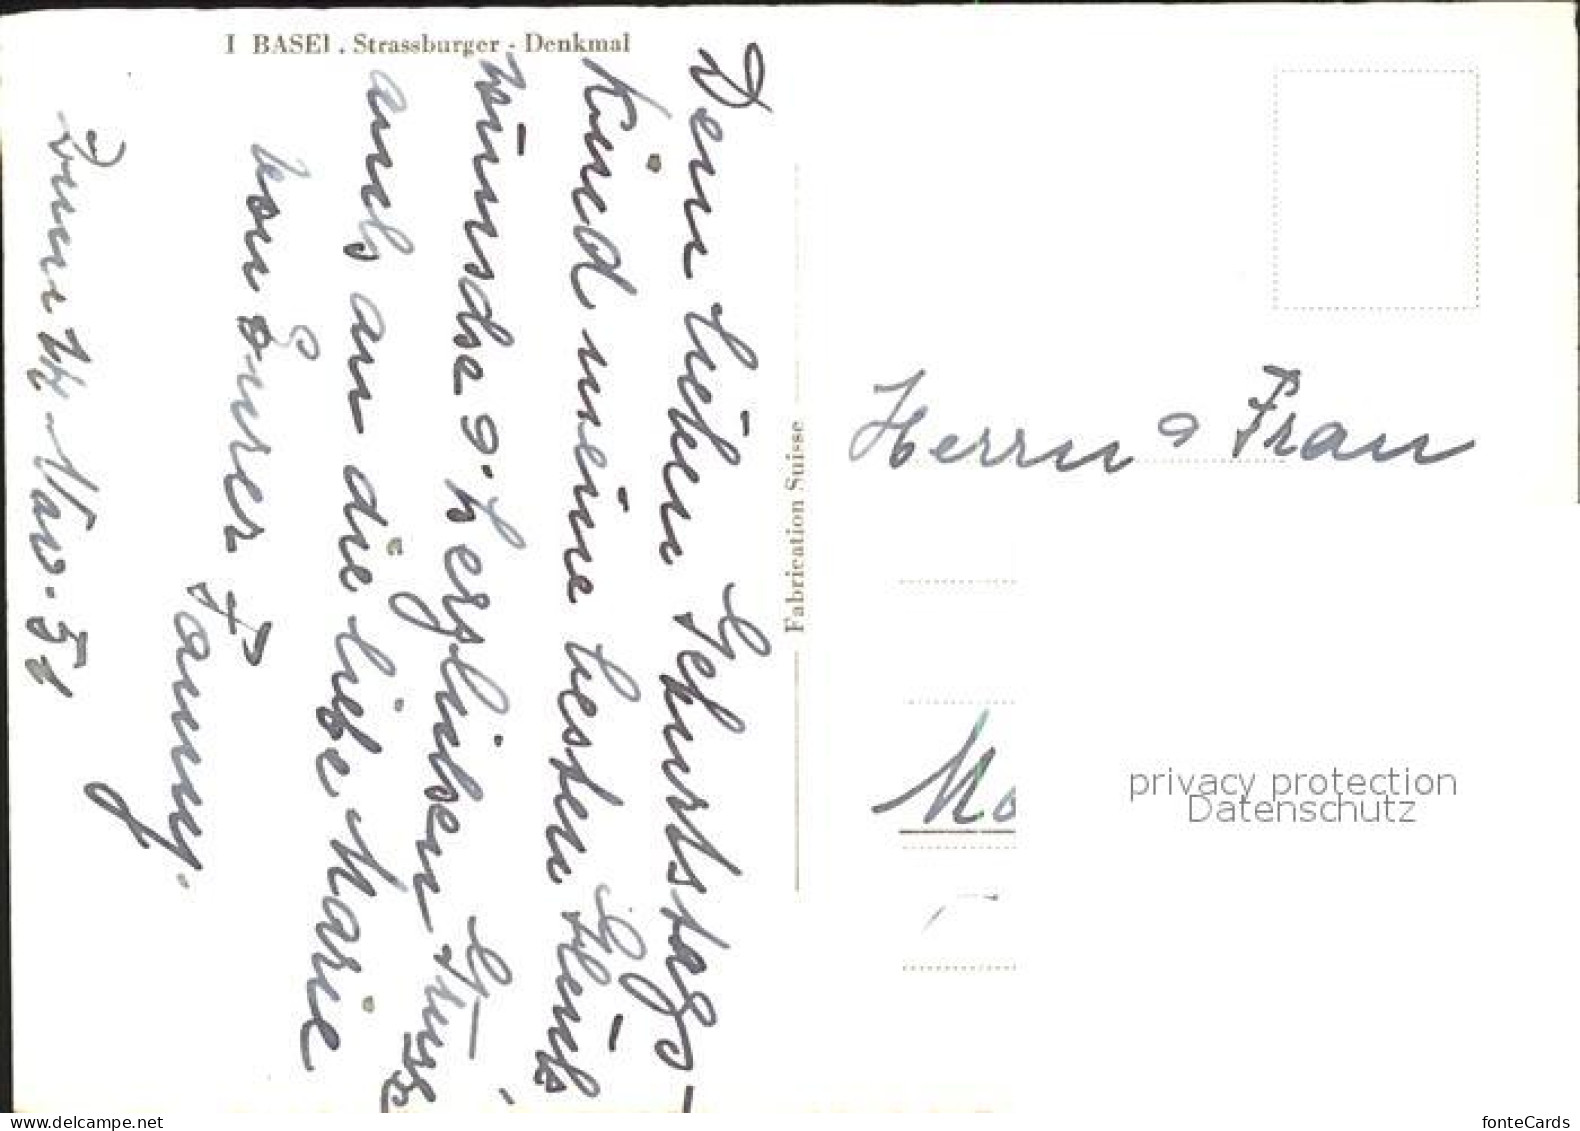 I BASEl . Strassburger - Denkmal
Dem lieben Geburtstags-
Kind meine besten Glück
wünsche & herzlichen Grüsse
auch an die liebe Marie
von Eurer
Fanny.
Nov. 51
Fabrication Suisse
Herrn & Frau
privacy protection
Datenschutz
www.delcampe.net
fonteCards